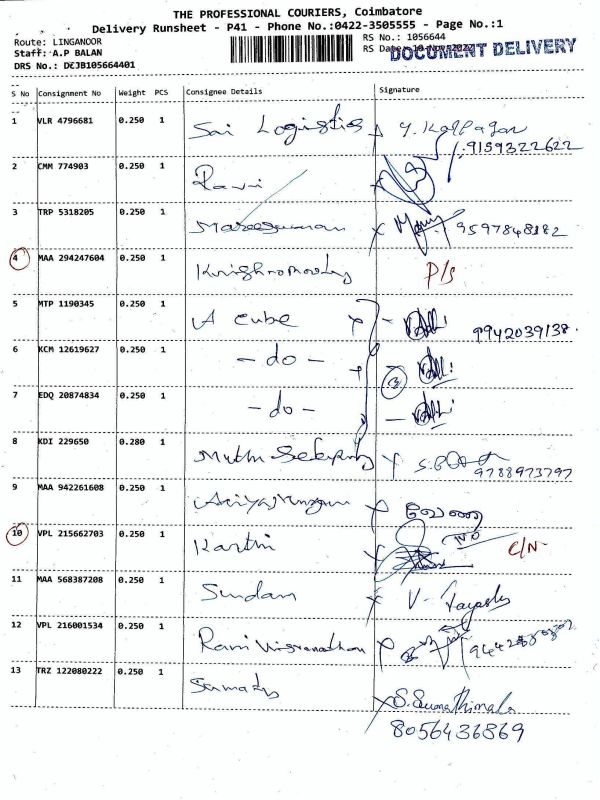 THE PROFESSIONAL COURIERS, Coimbatore
Delivery Runsheet - P41 - Phone No.:0422-3505555 - Page No.:1
Route: LINGANOOR
Staff: A.P BALAN
DRS No.: DCJB105664401
RS No.: 1056644
RS Date:
DOCUMENT DELIVERY
S No Consignment No Weight PCS Consignee Details Signature
1 VLR 4796681 0.250 1 Sai Logistics Y. Kalpagan
9159322622
2 CMM 774903 0.250 1 Ravi
3 TRP 5318205 0.250 1 9597848182
4 MAA 294247604 0.250 1 P/s
5 MTP 1190345 0.250 1 A cube 9942039138
6 KCM 12619627 0.250 1 - do -
7 EDQ 20874834 0.250 1 - do -
8 KDI 229650 0.280 1
9788973797
9 MAA 942261608 0.250 1
10 VPL 215662703 0.250 1 Karthi C/N
11 MAA 568387208 0.250 1 Sundam
12 VPL 216001534 0.250 1
13 TRZ 122080222 0.250 1
8056436869